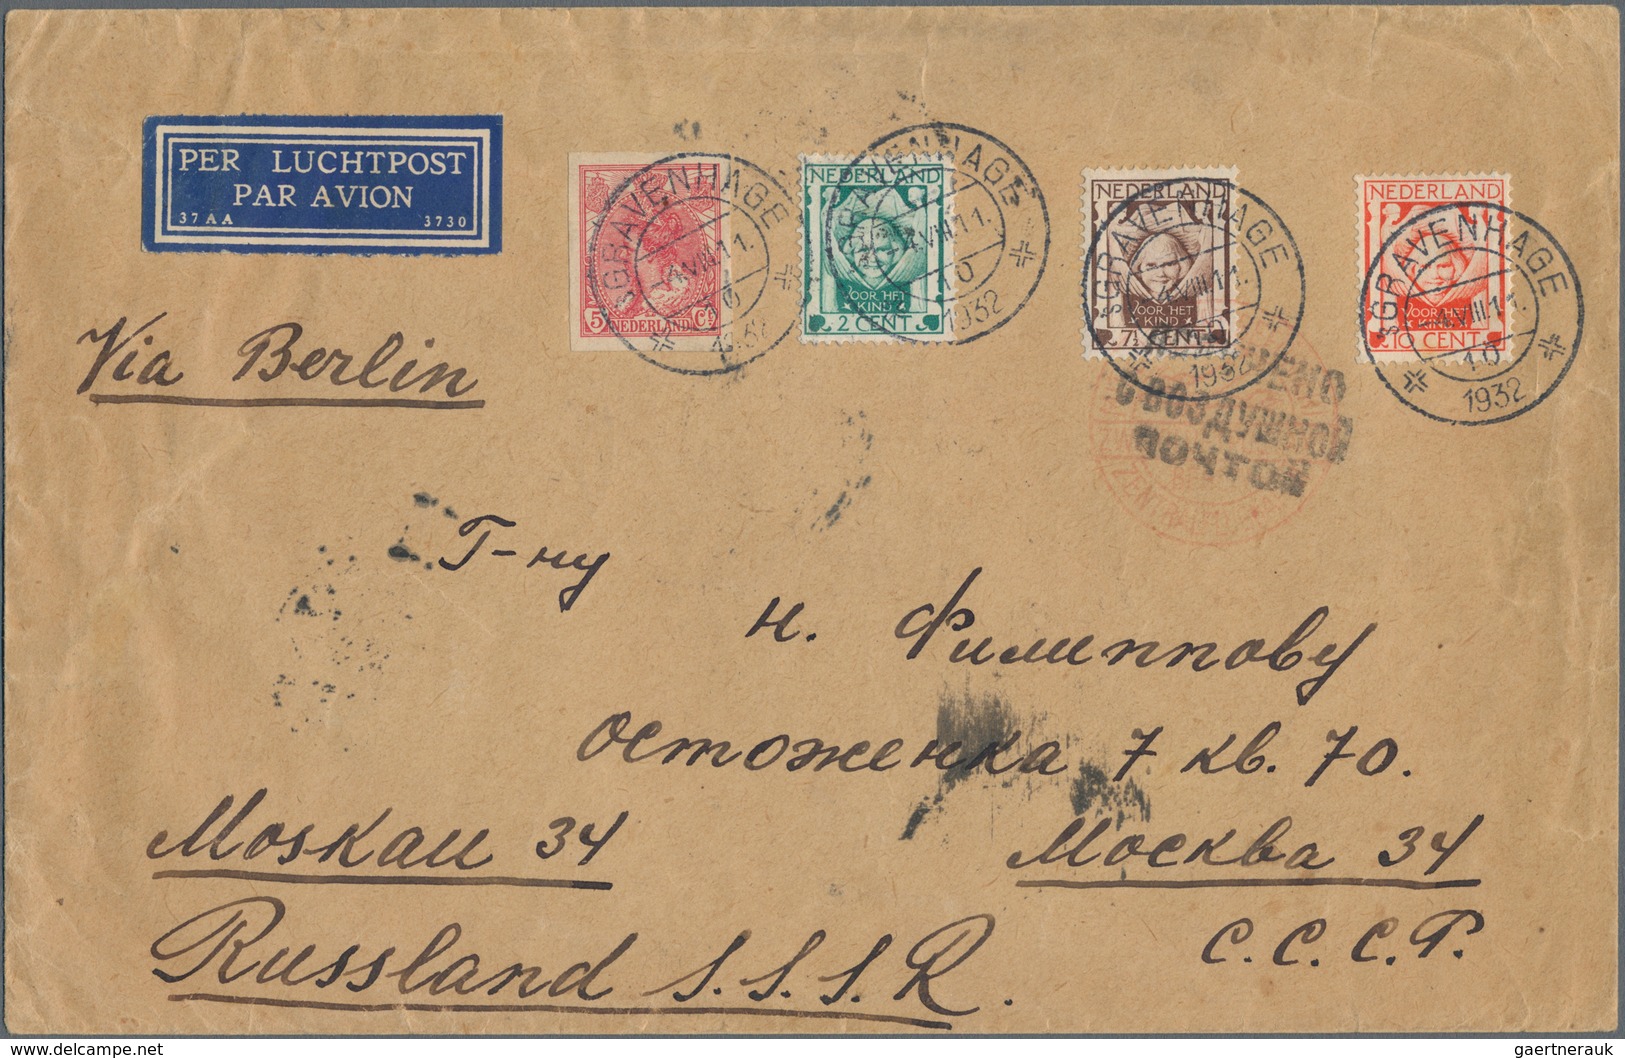 PER LUCHTPOST
PAR AVION
37 AA 3730
5 Ct
NEDERLAND
NEDERLAND
VOOR HET
KIND
2 CENT
NEDERLAND
VOOR HET
KIND
7½ CENT
NEDERLAND
VOOR HET
KIND
10 CENT
'SGRAVENHAGE
1932
'SGRAVENHAGE
1932
'SGRAVENHAGE
1932
'SGRAVENHAGE
1932
Via Berlin
С ВОЗДУШНОЙ
ПОЧТОЙ
Г-ну
Н. Филиппову
Остоженка 7 кв. 70.
Moskau 34
Москва 34
Russland S.S.S.R.
С.С.С.Р.
www.delcampe.net
gaertnerauk